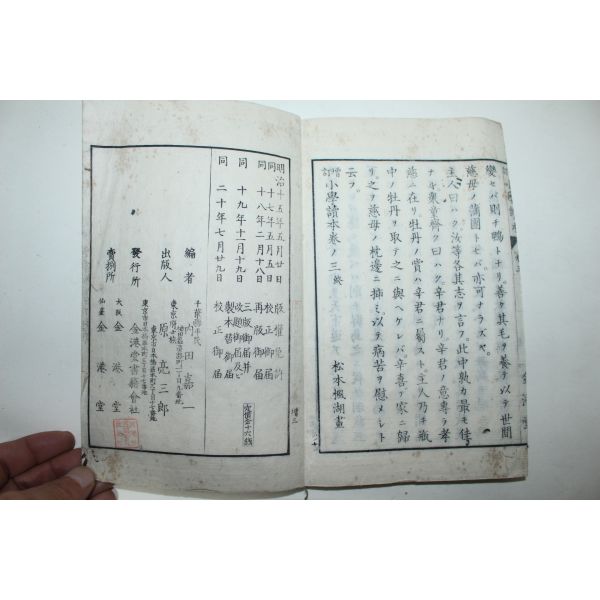 變セバ則チ鴨トナリ。善ク其毛ヲ養テ以テ世間
慈母ノ蒲團トセバ。亦可ナラズヤ。
主人曰ハク汝等各其志ヲ言フ。此中孰カ最モ佳
ナル。衆童齊ク曰ハク辛君ナリ。辛君ノ意專ラ孝
慈ニ在リ牡丹ノ賞ハ辛君ニ歸スト。主人乃チ瓶
中ノ牡丹ヲ取テ之ニ與ヘケレバ。辛喜テ家ニ歸
リ之ヲ慈母ノ枕邊ニ挿ミ。以テ病苦ヲ慰メシト
云フ。
小學讀本卷ノ三終
松本楓湖畫
明治十五年五月廿日 版權免許
同 十七年五月五日 校正御届
同 十八年二月十八日 再版御届
同 十九年十一月十九日 三版御届并改題御届及ヒ製本替御届
同 二十年七月廿九日 校正御届
定價金十六錢
編者 千葉縣平民 内田嘉一
出版人 東京府士族 原亮三郎
發行所 金港堂書籍會社
賣捌所 大阪 金港堂
仙臺 金港堂